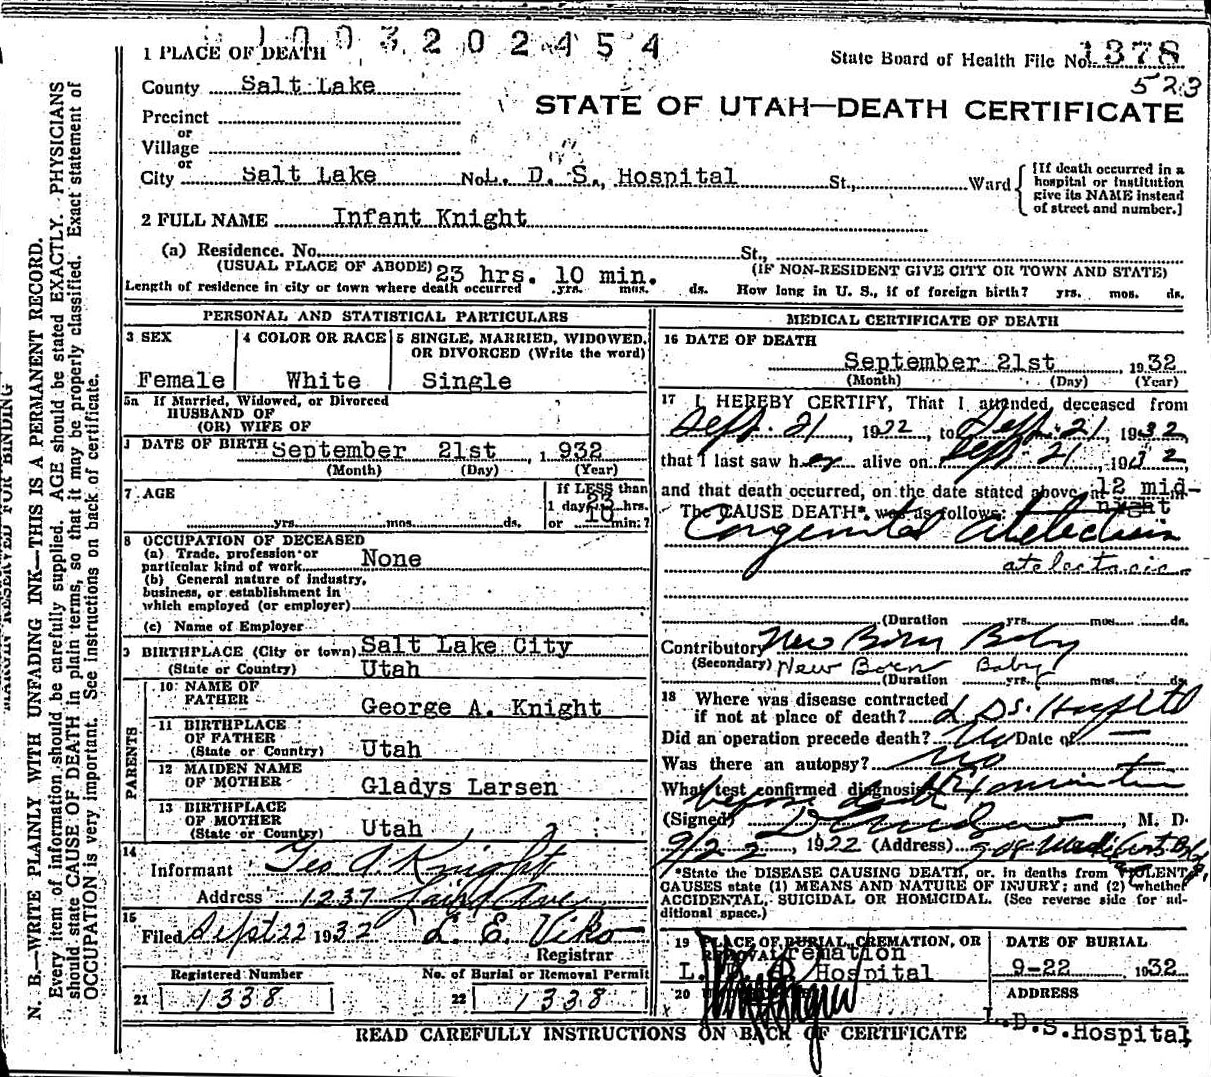 1003202454
1 PLACE OF DEATH
State Board of Health File No. 1378
523
County Salt Lake
STATE OF UTAH—DEATH CERTIFICATE
Precinct
or
Village
or
City Salt Lake No. L. D. S., Hospital St., Ward
[If death occurred in a
hospital or institution
give its NAME instead
of street and number.]
2 FULL NAME Infant Knight
(a) Residence. No. St.,
(USUAL PLACE OF ABODE) 23 hrs. 10 min. (IF NON-RESIDENT GIVE CITY OR TOWN AND STATE)
Length of residence in city or town where death occurred yrs. mos. ds. How long in U. S., if of foreign birth? yrs. mos. ds.
PERSONAL AND STATISTICAL PARTICULARS
3 SEX 4 COLOR OR RACE 5 SINGLE, MARRIED, WIDOWED,
OR DIVORCED (Write the word)
Female White Single
5a If Married, Widowed, or Divorced
HUSBAND OF
(OR) WIFE OF
DATE OF BIRTH September 21st, 1932
(Month) (Day) (Year)
7 AGE
If LESS than
1 day 23 hrs.
yrs. mos. ds. or 10 min.?
8 OCCUPATION OF DECEASED
(a) Trade, profession or
particular kind of work None
(b) General nature of industry,
business, or establishment in
which employed (or employer)
(c) Name of Employer
9 BIRTHPLACE (City or town) Salt Lake City
(State or Country) Utah
PARENTS
10 NAME OF
FATHER George A. Knight
11 BIRTHPLACE
OF FATHER
(State or Country) Utah
12 MAIDEN NAME
OF MOTHER Gladys Larsen
13 BIRTHPLACE
OF MOTHER
(State or Country) Utah
14
Informant Geo A. Knight
Address 1237 Laird Ave
15
Filed Sept 22 1932 L. E. Viko
Registrar
Registered Number No. of Burial or Removal Permit
21 1338 22 1338
MEDICAL CERTIFICATE OF DEATH
16 DATE OF DEATH
September 21st, 1932
(Month) (Day) (Year)
17 I HEREBY CERTIFY, That I attended deceased from
Sept. 21, 1922, to Sept. 21, 1932,
that I last saw her alive on Sept 21, 1932,
and that death occurred, on the date stated above, at 12 mid-
night
The CAUSE DEATH*, was as follows:
Congenital atelectasis
atelectasis
(Duration yrs. mos. ds.
Contributory New Born Baby
(Secondary) New Born Baby
(Duration yrs. mos. ds.
18 Where was disease contracted
if not at place of death? L Ds. Hospital
Did an operation precede death? No Date of —
Was there an autopsy? No
What test confirmed diagnosis?
before death
(Signed) M. D.
9/22, 1922 (Address)
*State the DISEASE CAUSING DEATH, or, in deaths from VIOLENT
CAUSES state (1) MEANS AND NATURE OF INJURY; and (2) whether
ACCIDENTAL, SUICIDAL OR HOMICIDAL. (See reverse side for ad-
ditional space.)
19 PLACE OF BURIAL, CREMATION, OR
REMOVAL Cremation
L. D. S. Hospital
DATE OF BURIAL
9-22, 1932
20
ADDRESS
L.D.S. Hospital
READ CAREFULLY INSTRUCTIONS ON BACK OF CERTIFICATE
MARGIN RESERVED FOR BINDING
N. B.—WRITE PLAINLY WITH UNFADING INK—THIS IS A PERMANENT RECORD.
Every item of information should be carefully supplied. AGE should be stated EXACTLY. PHYSICIANS
should state CAUSE OF DEATH in plain terms, so that it may be properly classified. Exact statement of
OCCUPATION is very important. See instructions on back of certificate.